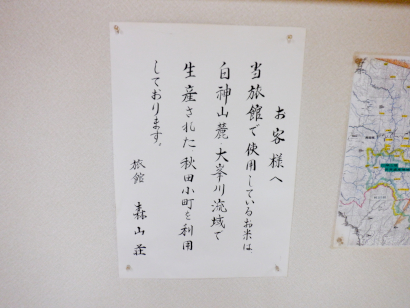 お客様へ
当旅館で使用しているお米は
白神山麓、大峯川流域で
生産された秋田小町を利用
しております。
旅館 森山荘